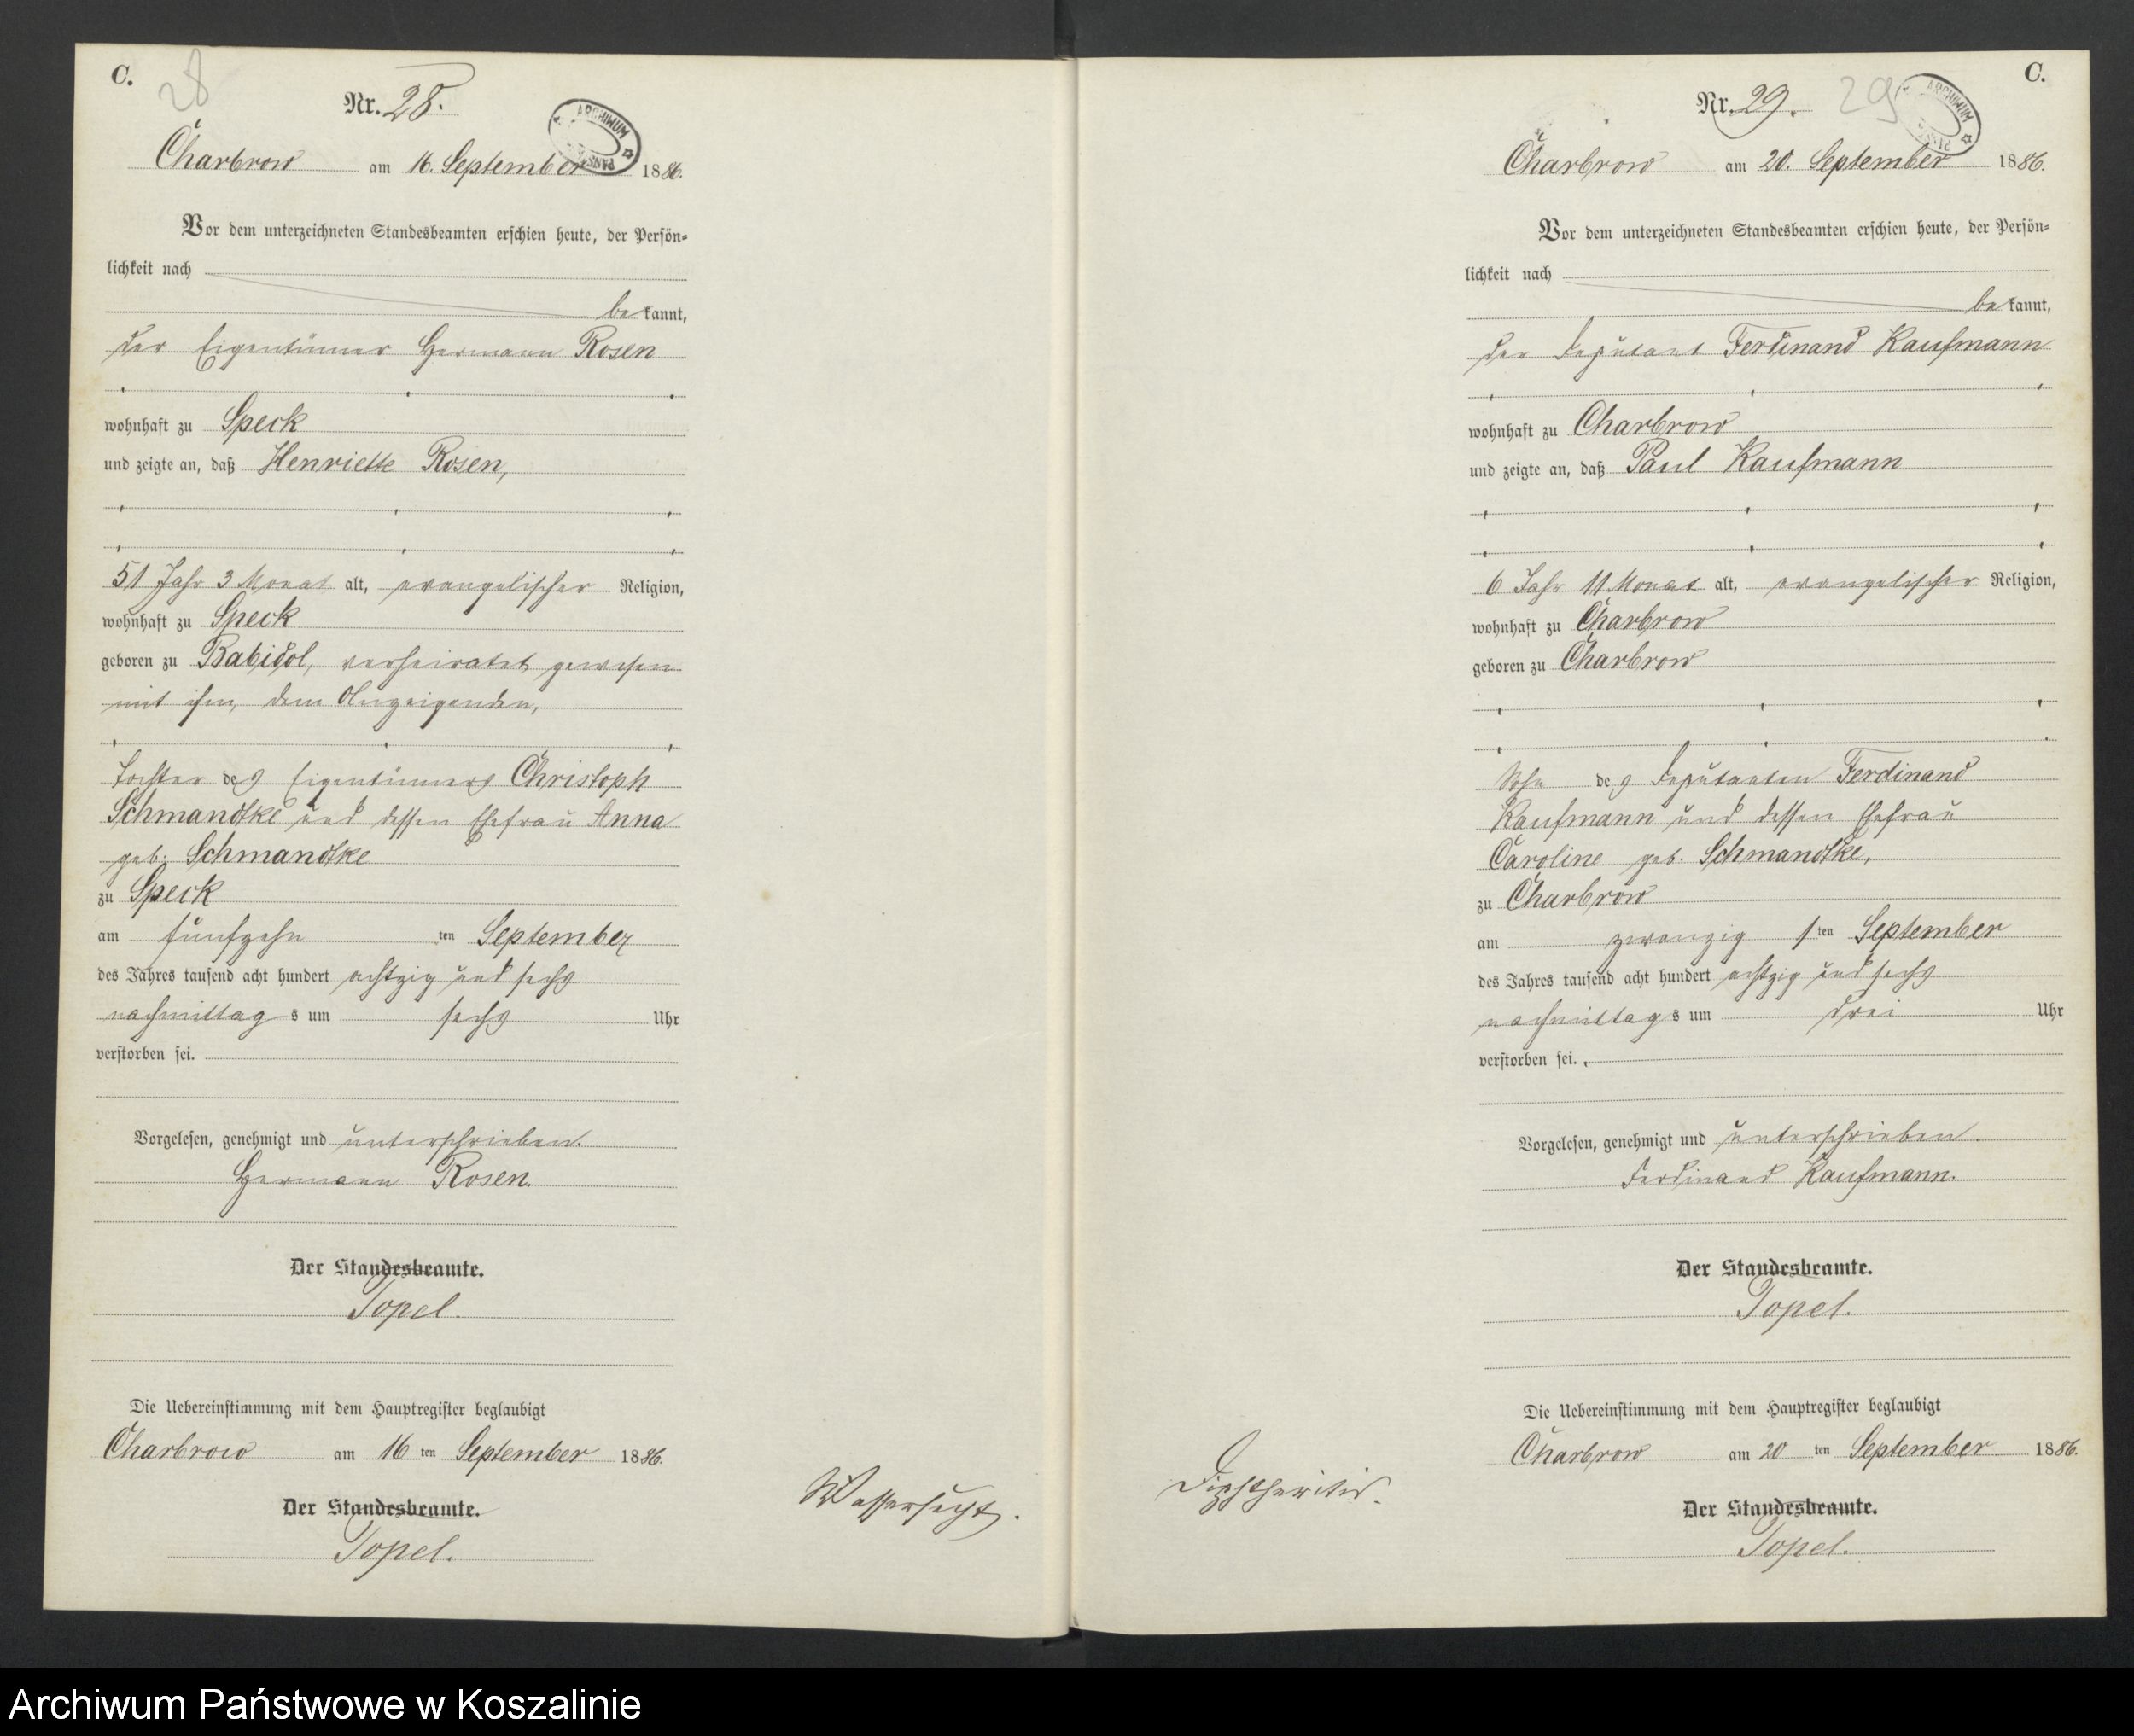 C.
28
Nr. 28.
ARCHIWUM
Charbrow am 16. September 1886.
Vor dem unterzeichneten Standesbeamten erschien heute, der Persön-
lichkeit nach
bekannt,
der Eigentümer Hermann Rosen
wohnhaft zu Speck
und zeigte an, daß Henriette Rosen,
51 Jahr 3 Monat alt, evangelischer Religion,
wohnhaft zu Speck
geboren zu Babidol, verheiratet gewesen
mit ihm, dem Anzeigenden,
Tochter des Eigentümers Christoph
Schmandtke und dessen Ehefrau Anna
geb. Schmandtke
zu Speck
am fünfzehn ten September
des Jahres tausend acht hundert achtzig und sechs
nachmittags um sechs Uhr
verstorben sei.
Vorgelesen, genehmigt und unterschrieben.
Hermann Rosen.
Der Standesbeamte.
Topel.
Die Uebereinstimmung mit dem Hauptregister beglaubigt
Charbrow am 16 ten September 1886.
Der Standesbeamte.
Topel.
Wassersucht.
C.
29
Nr. 29.
ARCHIWUM
Charbrow am 20. September 1886.
Vor dem unterzeichneten Standesbeamten erschien heute, der Persön-
lichkeit nach
bekannt,
der Deputant Ferdinand Kaufmann
wohnhaft zu Charbrow
und zeigte an, daß Paul Kaufmann
6 Jahr 11 Monat alt, evangelischer Religion,
wohnhaft zu Charbrow
geboren zu Charbrow
Sohn des Deputanten Ferdinand
Kaufmann und dessen Ehefrau
Caroline geb. Schmandtke,
zu Charbrow
am zwanzig sten September
des Jahres tausend acht hundert achtzig und sechs
nachmittags um drei Uhr
verstorben sei.
Vorgelesen, genehmigt und unterschrieben.
Ferdinand Kaufmann.
Der Standesbeamte.
Topel.
Die Uebereinstimmung mit dem Hauptregister beglaubigt
Charbrow am 20 ten September 1886.
Der Standesbeamte.
Topel.
Diphtheritis.
Archiwum Państwowe w Koszalinie